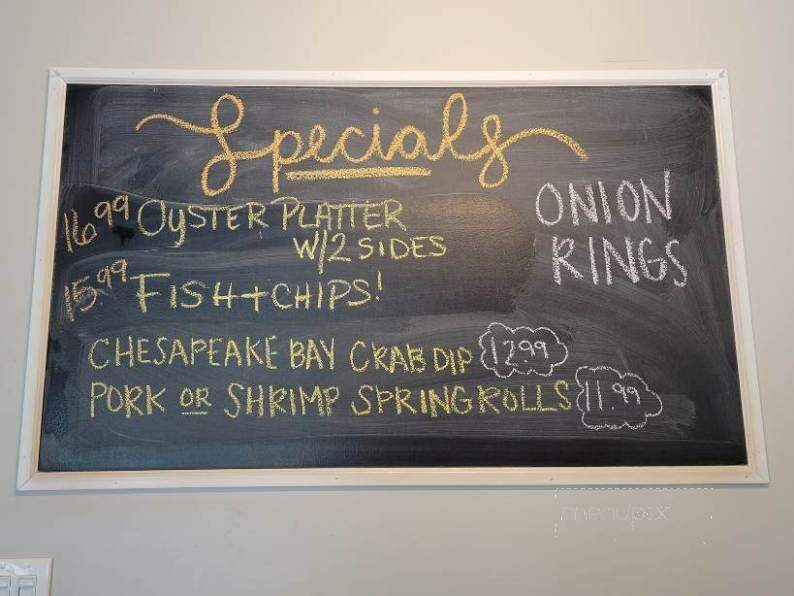 Specials
16.99 OYSTER PLATTER
W/2 SIDES
15.99 FISH + CHIPS!
CHESAPEAKE BAY CRAB DIP 12.99
PORK OR SHRIMP SPRING ROLLS 11.99
ONION
RINGS
menupix